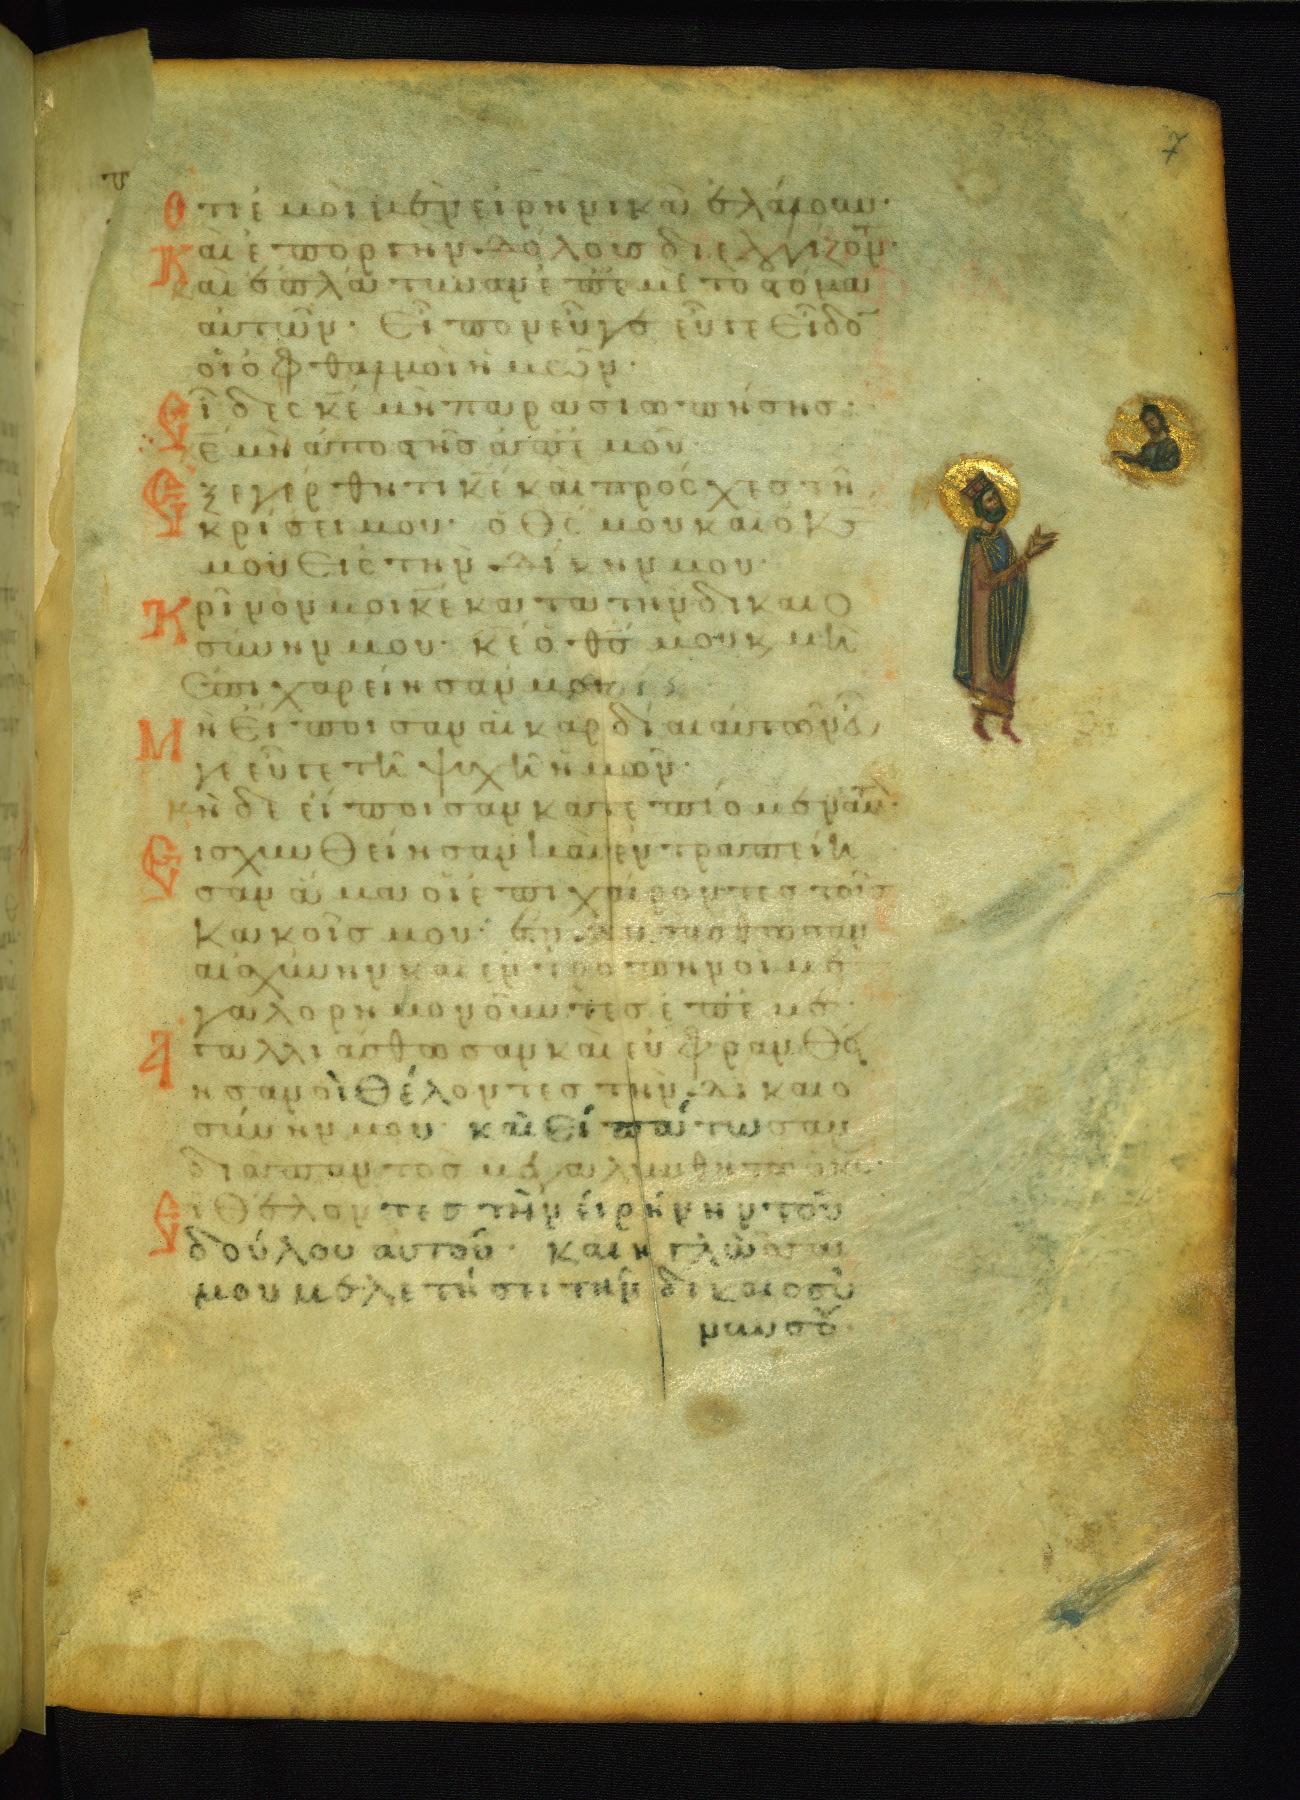 7
Ὅτι ἐμοὶ μὲν εἰρηνικὰ ἐλάλουν·
Καὶ ἐπ ὀργὴν δόλους διελογίζοντο·
Καὶ ἐπλάτυναν ἐπ ἐμὲ τὸ στόμα
αὐτῶν· Εἶπον εὖγε εὖγε εἶδον
οἱ ὀφθαλμοὶ ἡμῶν·
Εἶδες κε μὴ παρασιωπήσης·
κε μὴ ἀποστῆς ἀπ ἐμοῦ·
Ἐξεγέρθητι κε καὶ πρόσχες τῆ
κρίσει μου· ὁ θς μου καὶ ὁ κς
μου εἰς τὴν δίκην μου·
Κρῖνόν μοι κε κατὰ τὴν δικαιο
σύνην μου· κε ὁ θς μου κ μὴ
ἐπιχαρείησάν μοι
Μὴ εἴποισαν ἐν καρδίαις αὐτῶν εὖ
γε εὖγε τῆ ψυχῆ ἡμῶν·
μηδὲ εἴποισαν κατεπίομεν αὐτόν·
Αἰσχυνθείησαν καὶ ἐντραπείη
σαν ἅμα οἱ ἐπιχαίροντες τοῖς
κακοῖς μου· ἐνδυσάσθωσαν
αἰσχύνην καὶ ἐντροπὴν οἱ με
γαλορημονοῦντες ἐπ ἐμέ·
Ἀγαλλιάσθωσαν καὶ εὐφρανθεί
ησαν οἱ θέλοντες τὴν δικαιο
σύνην μου· καὶ εἰπάτωσαν
διαπαντὸς μεγαλυνθήτω ὁ κς·
οἱ θέλοντες τὴν εἰρήνην τοῦ
δούλου αὐτοῦ· καὶ ἡ γλῶσσα
μου μελετήσει τὴν δικαιοσύ
νην σου·